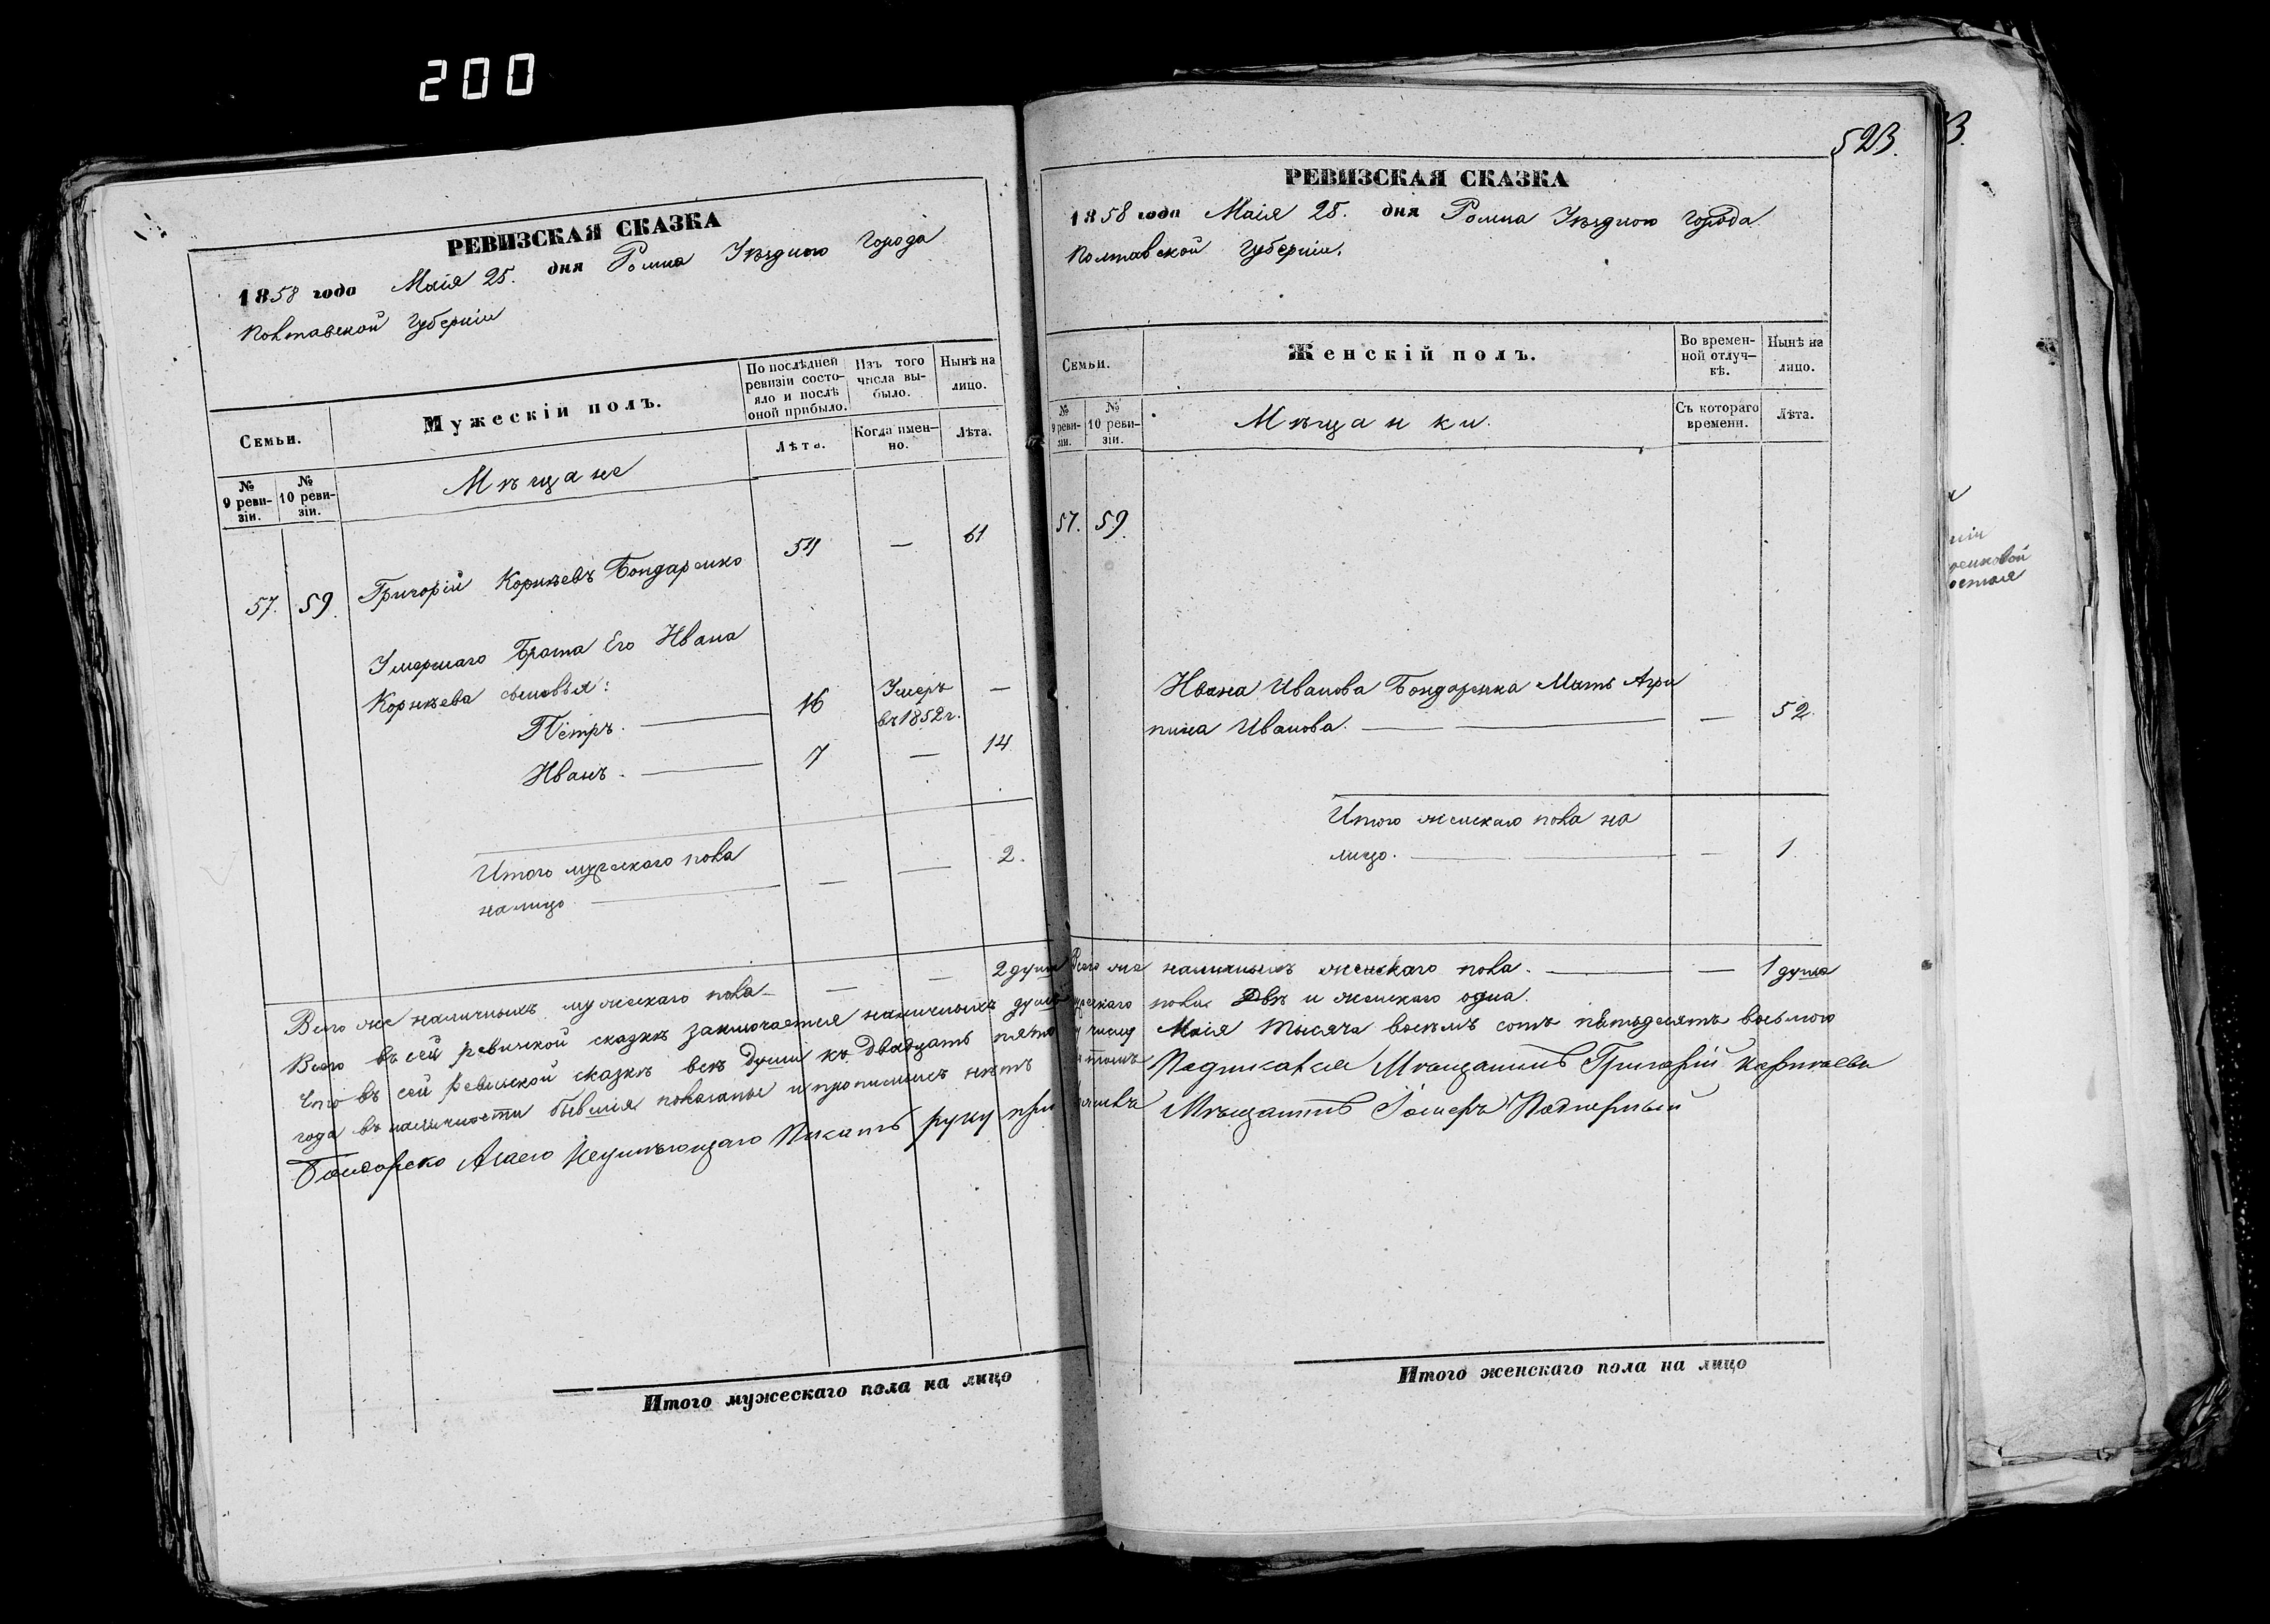 200
РЕВИЗСКАЯ СКАЗКА
1858 года Маія 25. дня Ромна Уѣзднаго Города
Полтавской Губерніи
Семьи.
Мужескій полъ.
По послѣдней ревизіи состояло и послѣ оной прибыло.
Изъ того числа выбыло.
Нынѣ на лицо.
№ 9 ревизіи.
№ 10 ревизіи.
Мѣщане
Лѣта.
Когда именно.
Лѣта.
57. 59. Григорій Корнѣевъ Бондаренко 54 — 61
Умершаго Брата Его Ивана
Корнѣева сыновья:
Пётръ. 16 Умеръ въ 1852 г. —
Иванъ. 7 — 14
Итого мужескаго пола
налицо — — 2.
Всего же наличныхъ мужескаго пола — — 2 души
Всего въ сей ревизской сказкѣ заключается наличныхъ душъ
Что въ сей ревизской сказкѣ всѣ души къ двадцать пято
года въ наличности бывшія показаны и прописныхъ нѣтъ
Бондарско Асаего Неумѣющаго Писать руку при
Итого мужескаго пола на лицо
523.
РЕВИЗСКАЯ СКАЗКА
1858 года Маія 25. дня Ромна Уѣзднаго города
Полтавской Губерніи.
Семьи.
Женскій полъ.
Во временной отлучкѣ.
Нынѣ на лицо.
№ 9 ревизіи.
№ 10 ревизіи.
Мѣщанки.
Съ котораго времени.
Лѣта.
57. 59.
Ивана Иванова Бондаренка Мать Агри
пина Иванова. — 52.
Итого женскаго пола на
лицо. — 1.
Всего же наличныхъ женскаго пола. — 1 душа
мужескаго пола Двѣ и женскаго одна.
му числу Маія тысяча восѣмъ сотъ пѣтьдесятъ восьмого
въ томъ Подписался Мѣщанинъ Григорій Корнѣевъ
Мѣщанинъ Подпорный
Итого женскаго пола на лицо